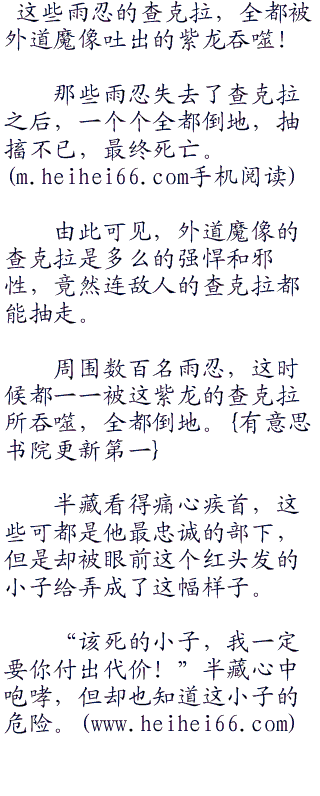 这些雨忍的查克拉，全都被
外道魔像吐出的紫龙吞噬！
那些雨忍失去了查克拉
之后，一个个全都倒地，抽
搐不已，最终死亡。
(m.heihei66.com手机阅读)
由此可见，外道魔像的
查克拉是多么的强悍和邪
性，竟然连敌人的查克拉都
能抽走。
周围数百名雨忍，这时
候都一一被这紫龙的查克拉
所吞噬，全都倒地。{有意思
书院更新第一}
半藏看得痛心疾首，这
些可都是他最忠诚的部下，
但是却被眼前这个红头发的
小子给弄成了这幅样子。
“该死的小子，我一定
要你付出代价！”半藏心中
咆哮，但却也知道这小子的
危险。(www.heihei66.com)